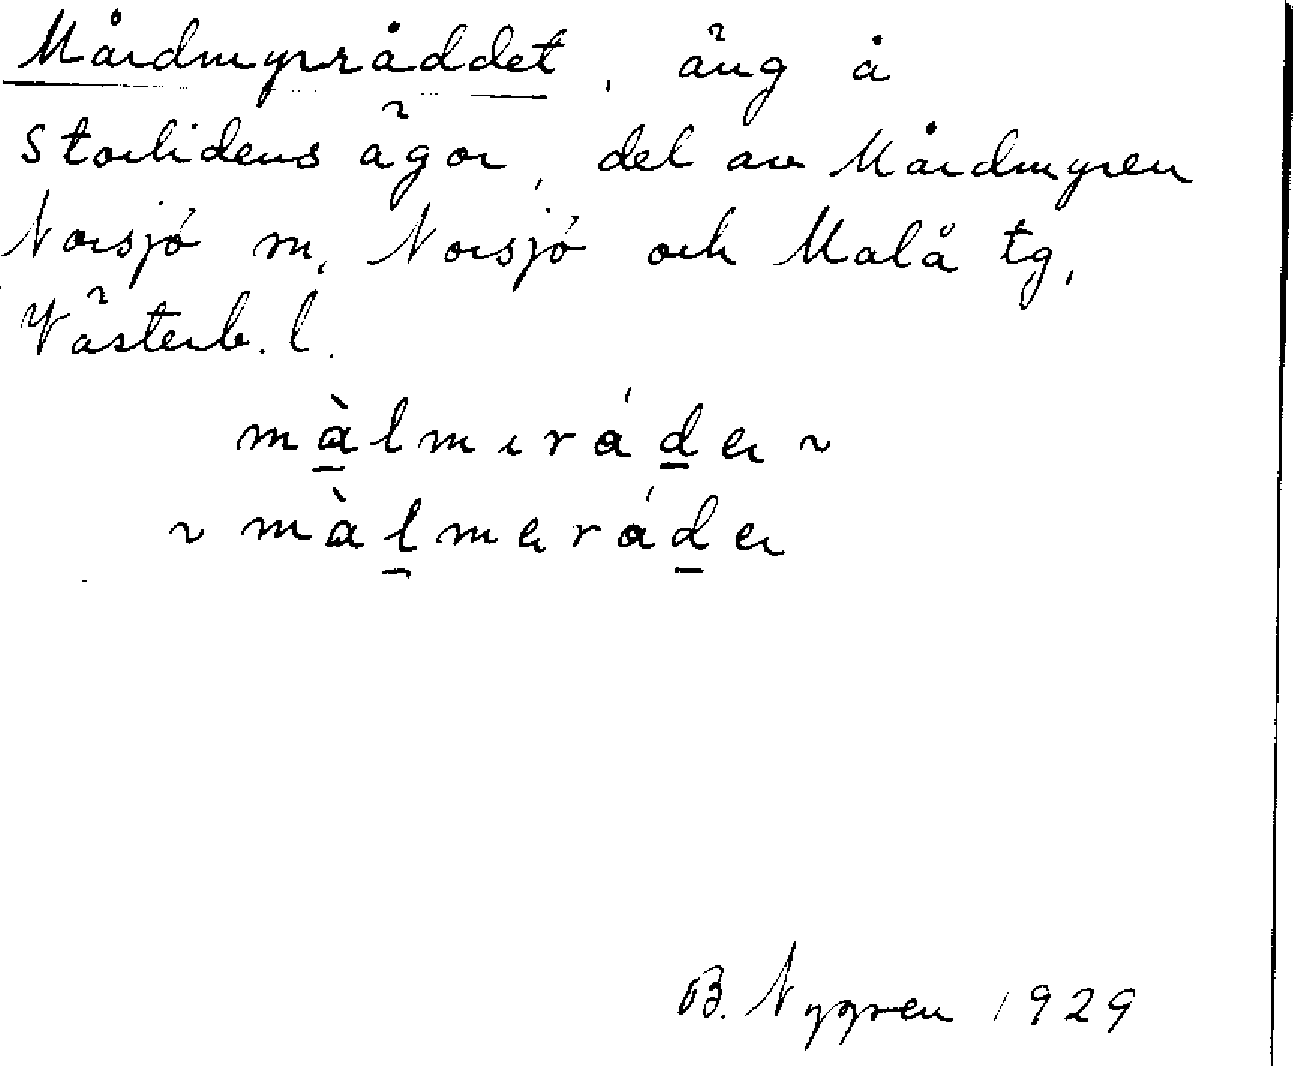 Mårdmyrråddet, äng å
Storlidens ägor, del av Mårdmyren
Norsjö m, Norsjö och Malå tg,
Västerb. l.
màlmıráder ~
~ màlmeráder
B. Nygren 1929